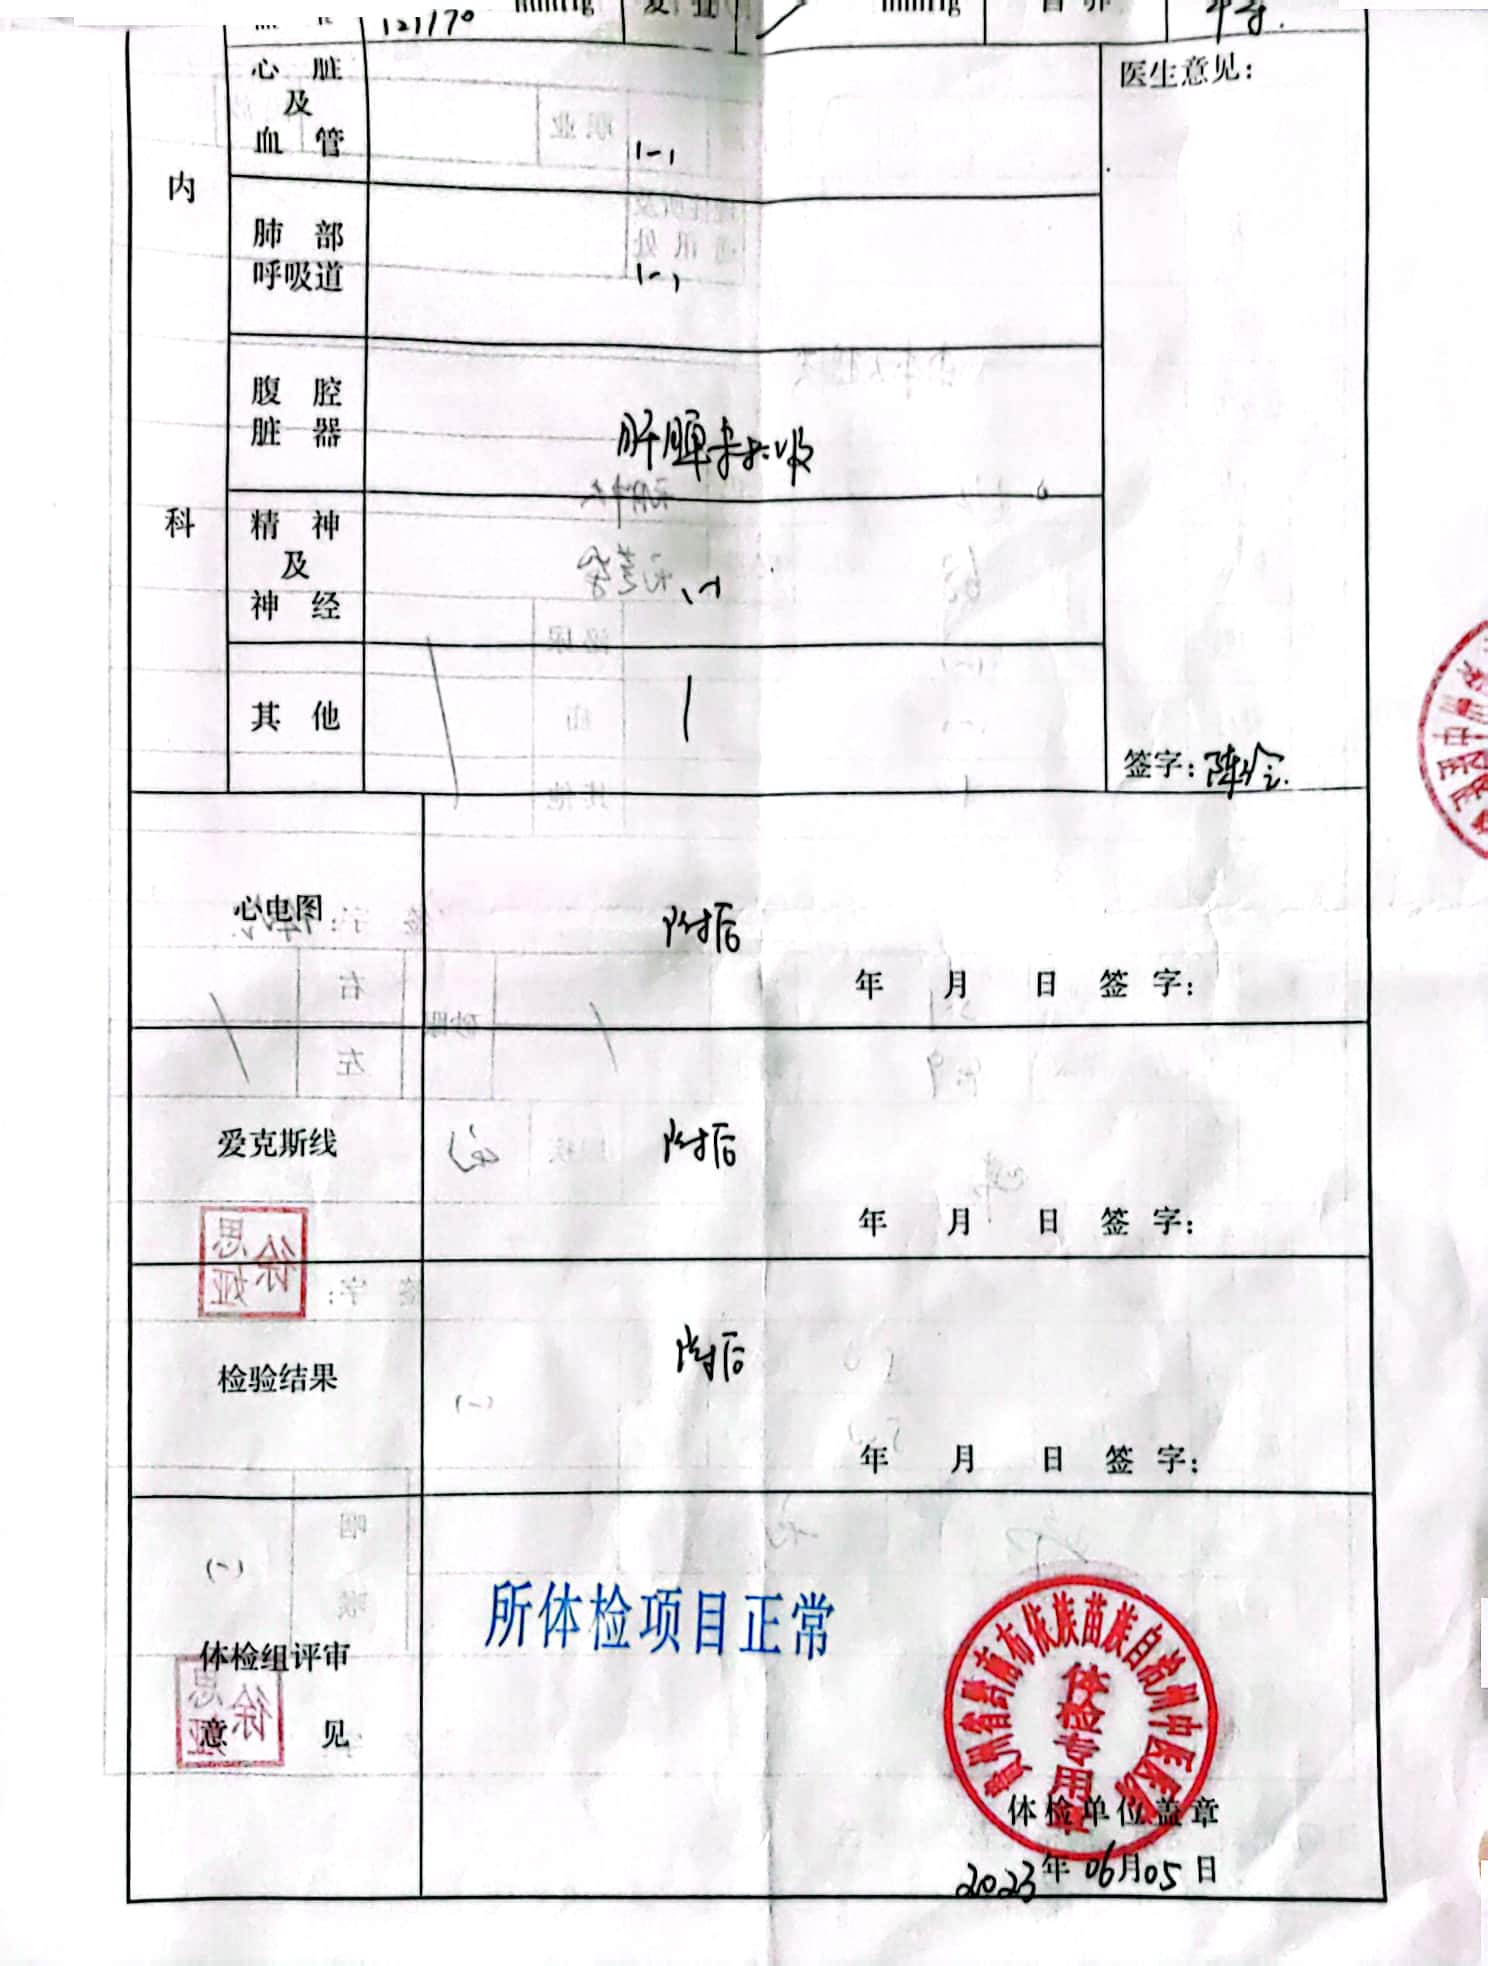 mmHg
mmHg
心 脏
及
血 管
医生意见：
内
肺 部
呼吸道
腹 腔
脏 器
肝脾未扪及
科
精 神
及
神 经
其 他
签字：
心电图
附后
年 月 日 签 字：
爱克斯线
附后
年 月 日 签 字：
检验结果
附后
年 月 日 签 字：
所体检项目正常
体检组评审
意 见
贵州省黔南布依族苗族自治州中医医院
体检专用章
体检单位盖章
2023年06月05日